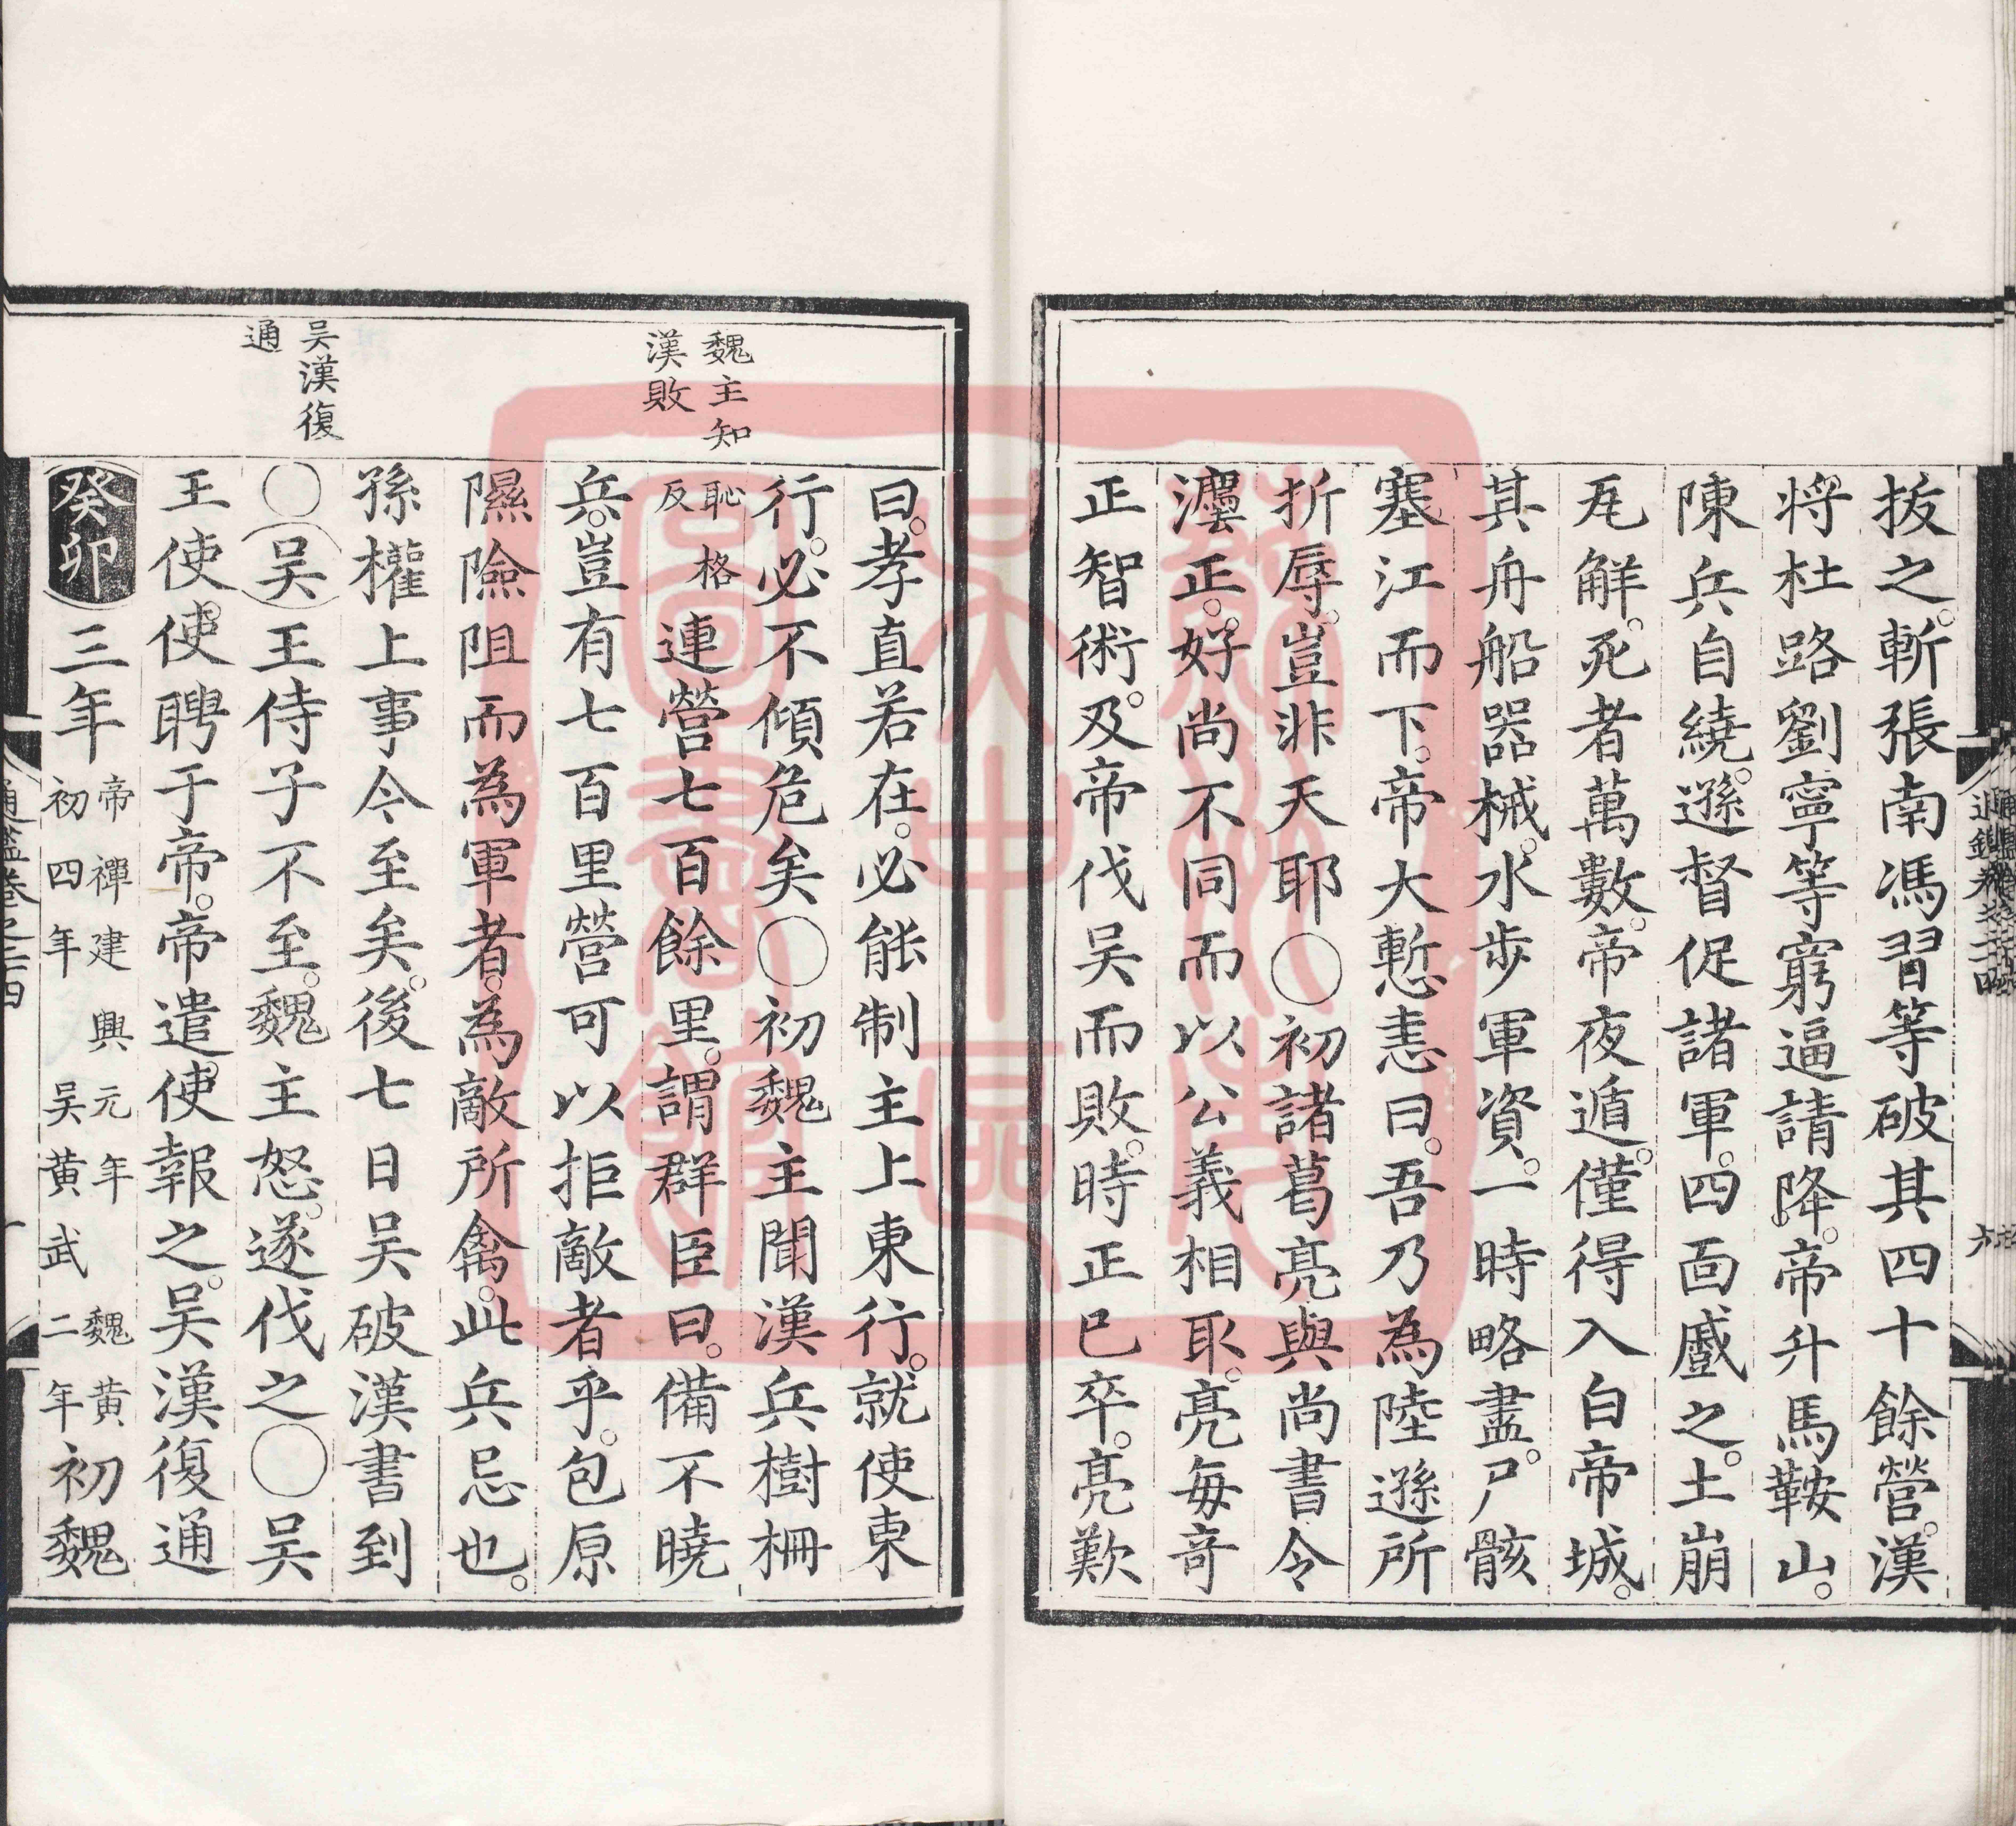 拔之。斬張南馮習等破其四十餘營。漢
將杜路劉寧等窮逼請降。帝升馬鞍山。
陳兵自繞。遜督促諸軍。四面蹙之。土崩
瓦解。死者萬數。帝夜遁。僅得入白帝城。
其舟船器械。水步軍資。一時略盡。尸骸
塞江而下。帝大慙恚曰。吾乃為陸遜所
折辱。豈非天耶○初諸葛亮與尚書令
灋正。好尚不同而以公義相取。亮每奇
正智術。及帝伐吳而敗。時正已卒。亮歎
魏主知
漢敗
吴漢復
通
曰。孝直若在。必能制主上東行。就使東
行。必不傾危矣○初魏主聞漢兵樹柵
恥格
反
連營七百餘里。謂群臣曰。備不曉
兵。豈有七百里營可以拒敵者乎。包原
隰險阻而為軍者。為敵所禽。此兵忌也。
孫權上事今至矣。後七日吴破漢書到
○吴王侍子不至。魏主怒。遂伐之○吴
王使使聘于帝。帝遣使報之。吴漢復通
癸卯三年
帝禪建興元年 魏黄
初四年 吴黄武二年
初魏